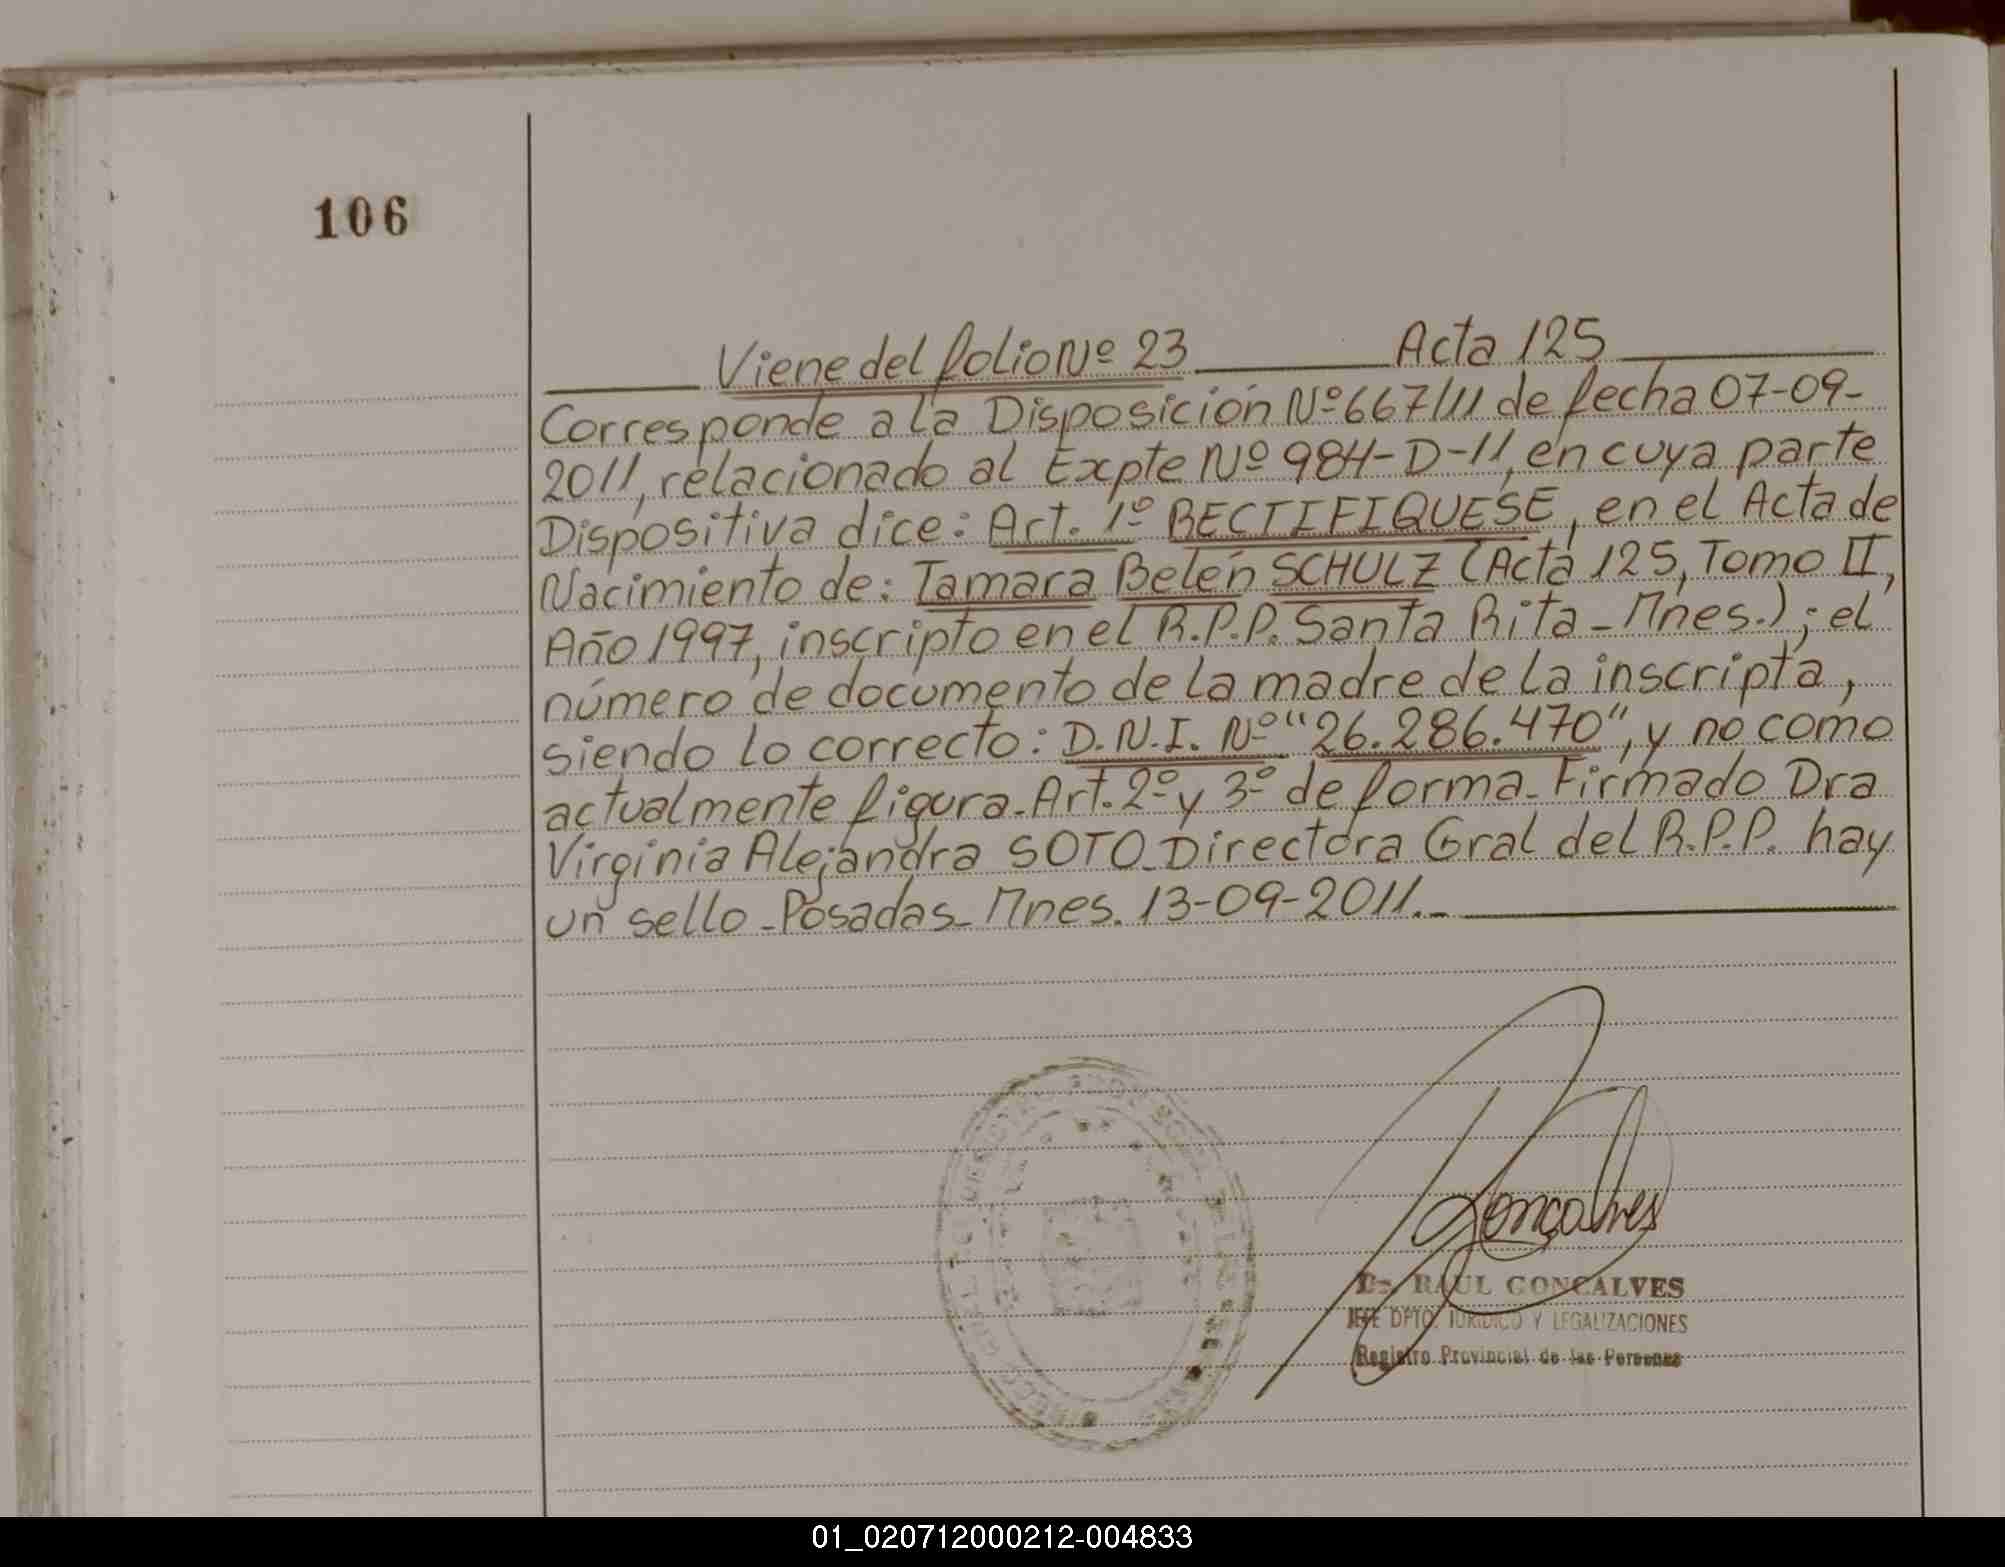 106
Viene del folio Nº 23 Acta 125
Corresponde a la Disposición Nº 667/11 de fecha 07-09-
2011, relacionado al Expte Nº 984-D-11, en cuya parte
Dispositiva dice: Art. 1º RECTIFIQUESE, en el Acta de
Nacimiento de: Tamara Belén SCHULZ (Acta 125, Tomo II,
Año 1997, inscripto en el R.P.P. Santa Rita - Mnes.); el
número de documento de la madre de la inscripta,
siendo lo correcto: D.N.I. Nº "26.286.470", y no como
actualmente figura - Art. 2º y 3º de forma - Firmado Dra
Virginia Alejandra SOTO - Directora Gral del R.P.P. hay
un sello - Posadas - Mnes. 13-09-2011.-
Gonçalves
Dr. RAUL GONCALVES
JEFE DPTO. JURIDICO Y LEGALIZACIONES
Registro Provincial de las Personas
01_020712000212-004833